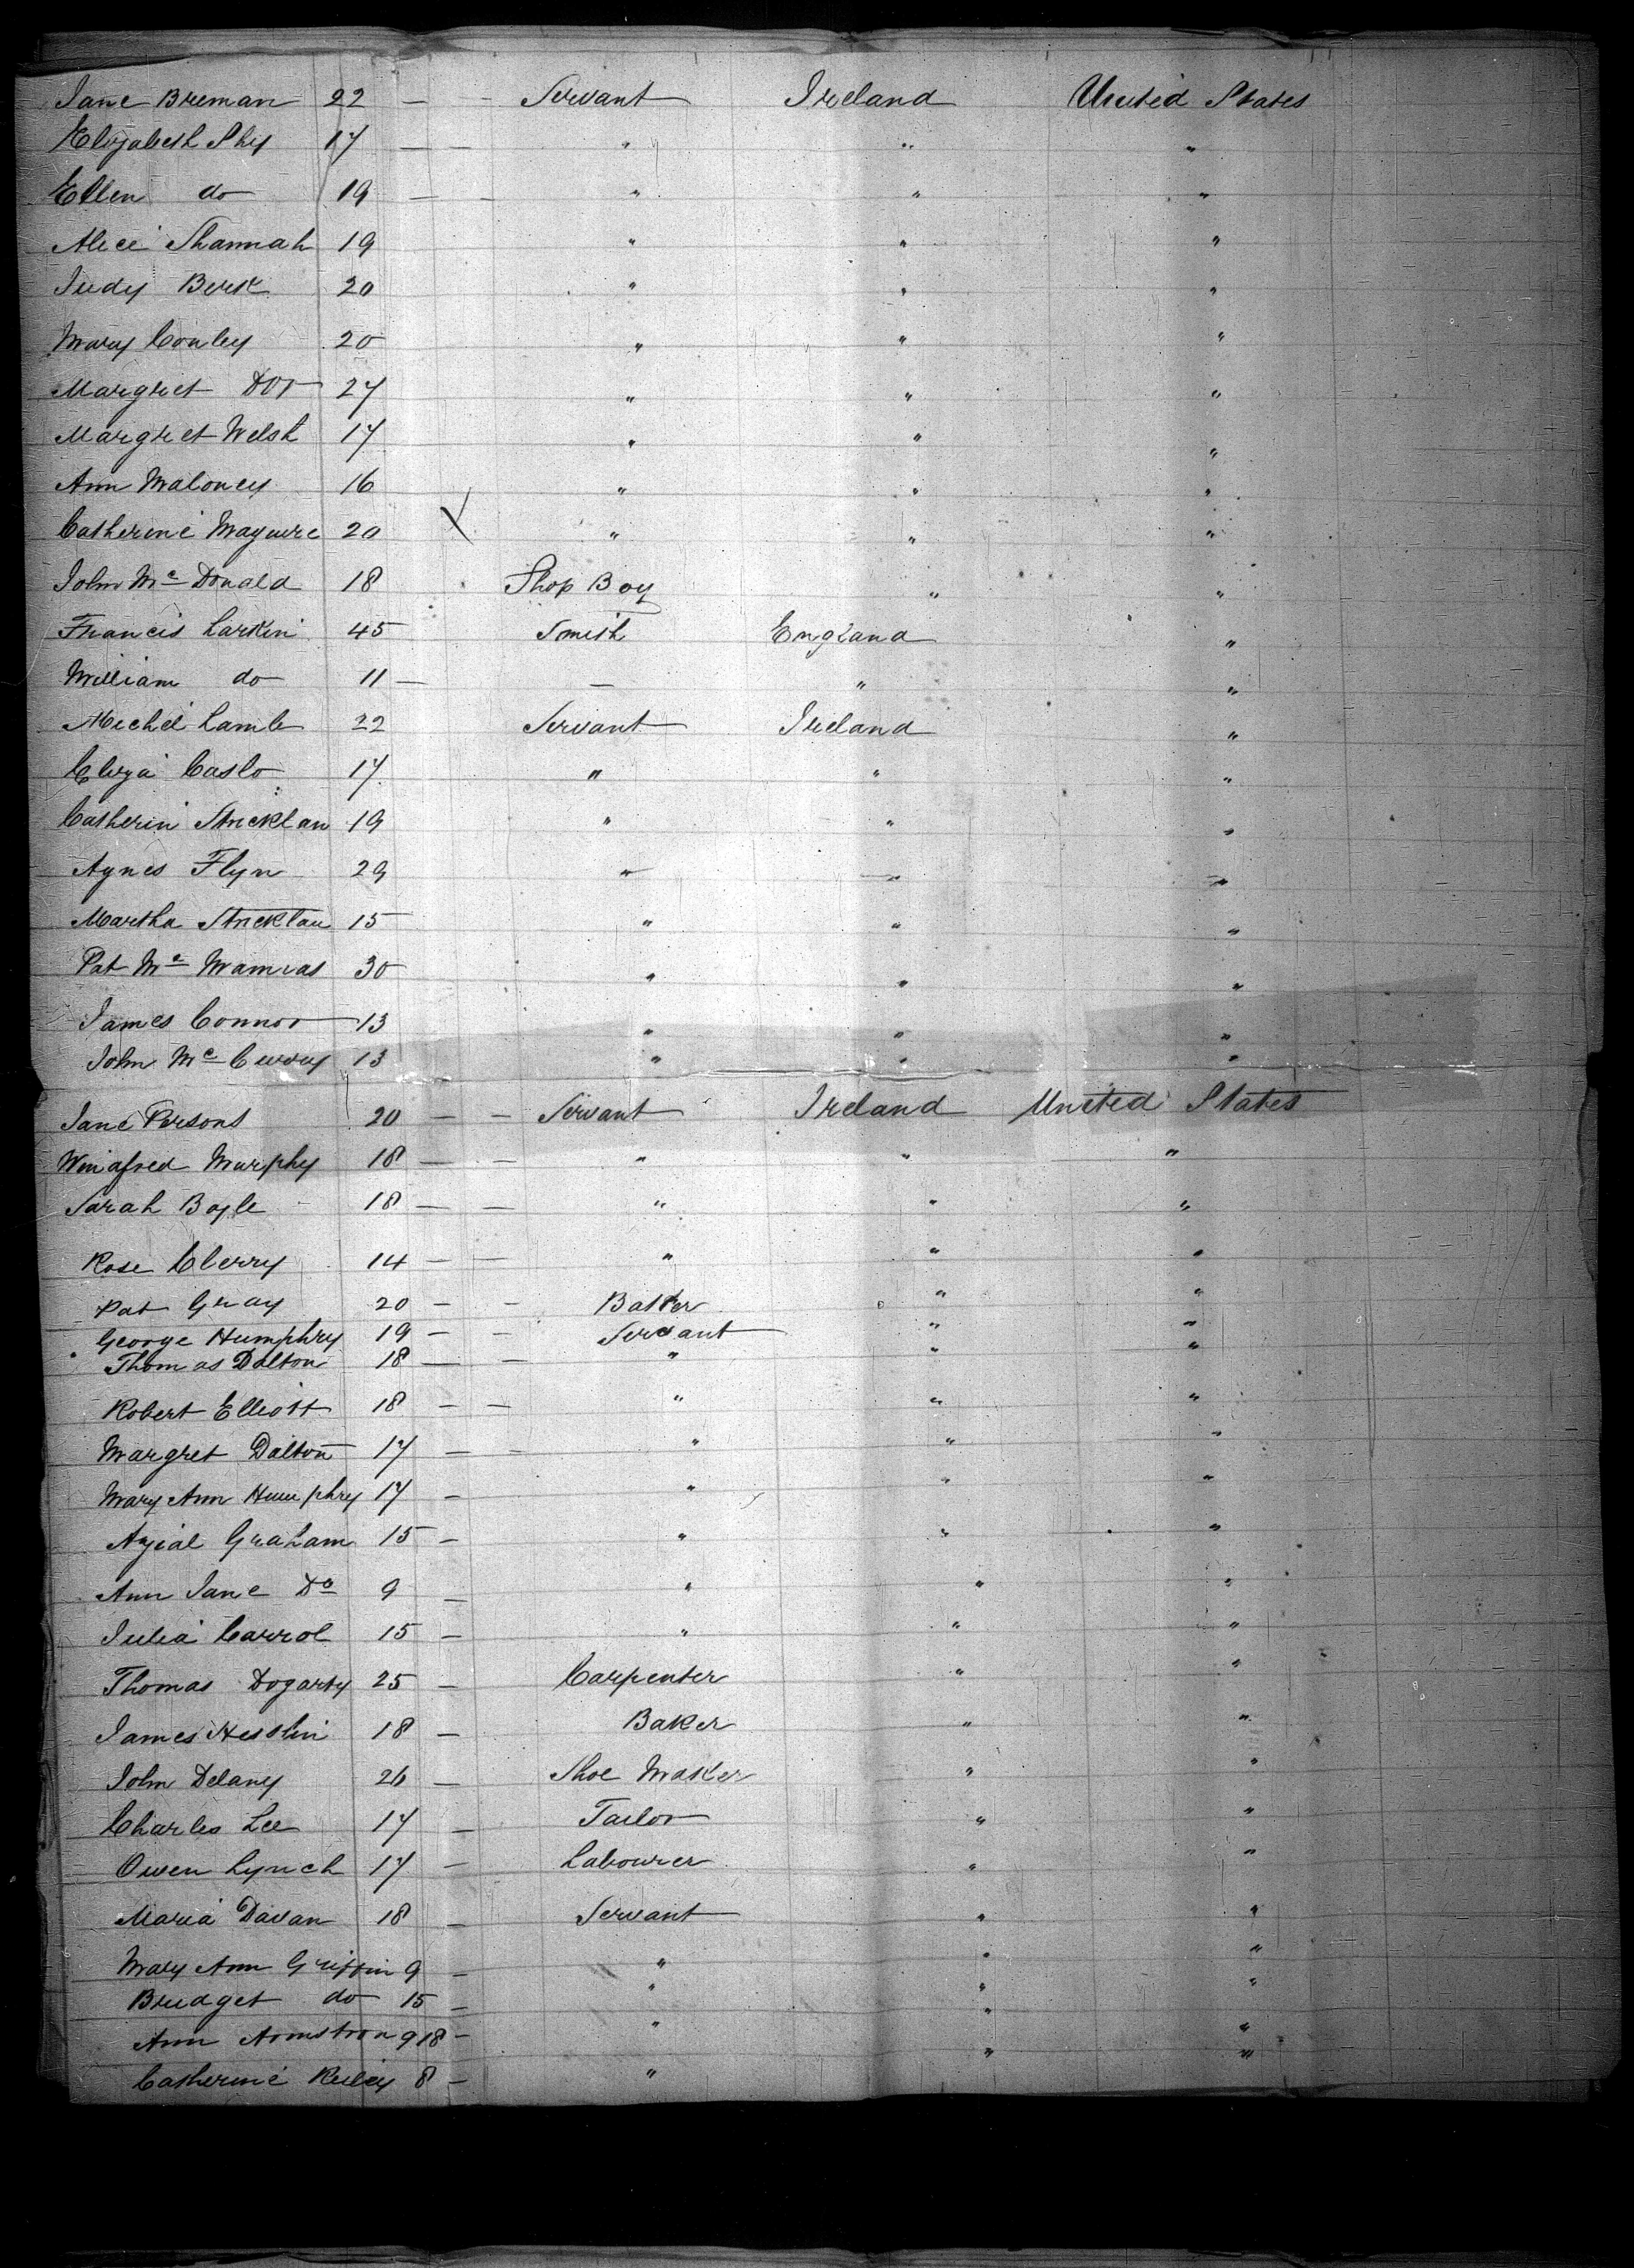 Jane Breman 22 — - Servant Ireland United States
Elizabeth Shy 17 — — " " "
Ellen do 19 — - " " "
Alice Shannah 19 " " "
Judy Berk 20 " " "
Mary Conley 20 " " "
Margret Do 27 " " "
Margret Welsh 17 " " "
Ann Maloney 16 " " "
Catherine Maguire 20 " " "
John Mc Donald 18 Shop Boy " "
Francis Larkin 45 Smith England "
William do 11 — — " "
Michel Lamb 22 Servant Ireland "
Eliza Caslo 17 " " "
Catherin Stricklan 19 " " "
Agnes Flyn 29 " " "
Martha Stricklan 15 " " "
Pat Mc Mamras 30 " " "
James Connor 13 " " "
John Mc Curdy 13 " " "
Jane Persons 20 — — Servant Ireland United States
Winafred Murphy 18 — — " " "
Sarah Boyle 18 — — " " "
Rose Cherry 14 — — " " "
Pat Gray 20 — - Baker " "
George Humphry 19 — - Servant " "
Thomas Dalton 18 — — " " "
Robert Elliott 18 — — " " "
Margret Dalton 17 — - " " "
Mary Ann Humphry 17 — " " "
Graham 15 — " " "
Ann Jane Do 9 — " " "
Julia Carrol 15 — " " "
Thomas Dogarty 25 — Carpenter " "
James Heslin 18 — Baker " "
John Delany 26 — Shoe Maker " "
Charles Lee 17 — Tailor " "
Owen Lynch 17 — Labourer " "
Maria Davan 18 — Servant " "
Mary Ann Griffin 9 — " " "
Bridget do 15 — " " "
Ann Armstrong 18 — " " "
Catherine Reiley 8 — " " "